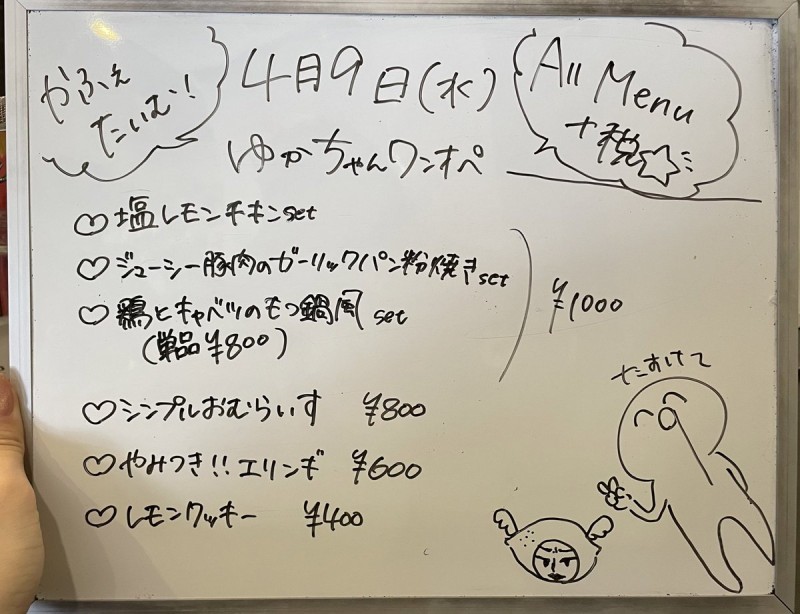 かふぇ
たいむ!
4月9日(水)
All Menu
+税☆
ゆかちゃんワンオペ
♡塩レモンチキンset
♡ジューシー豚肉のガーリックパン粉焼きset
♡鶏とキャベツのもつ鍋風set
(単品¥800)
¥1000
♡シンプルおむらいす ¥800
♡やみつき!!エリンギ ¥600
♡レモンクッキー ¥400
たすけて